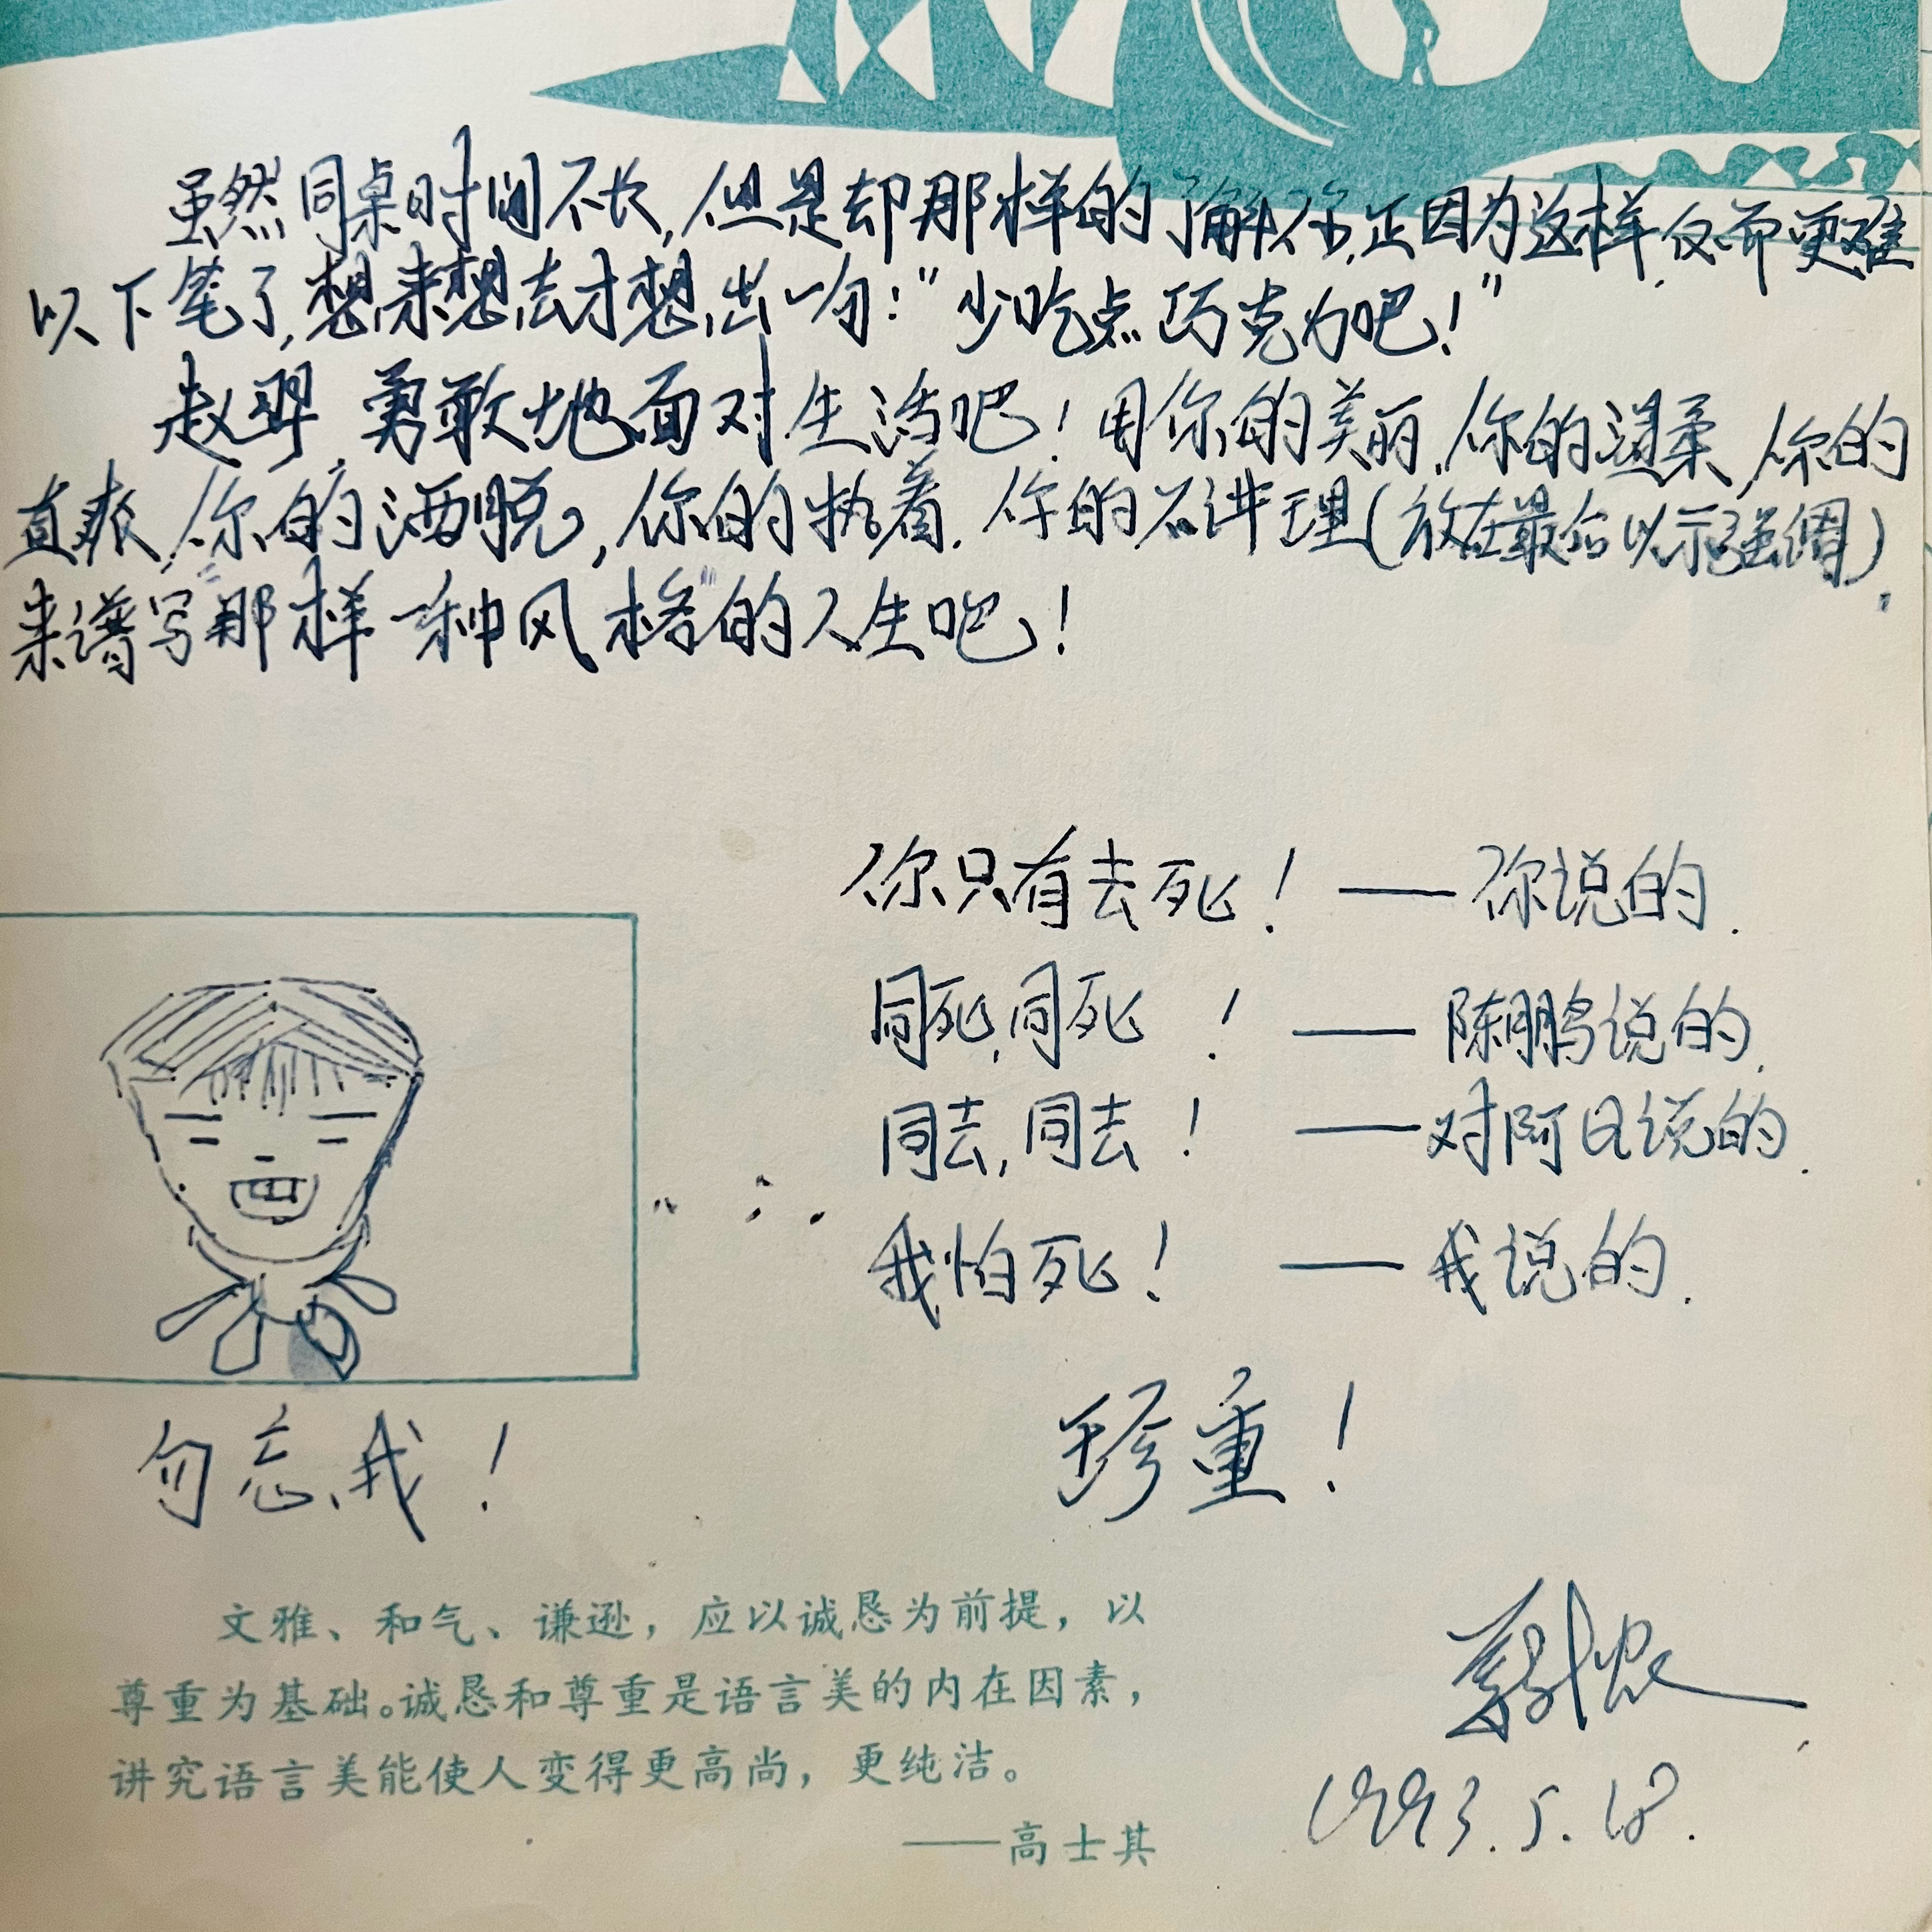 虽然同桌时间不长,但是却那样的了解你,正因为这样,反而更难
以下笔了,想来想去才想出一句:“少吃点巧克力吧!”
赵翠,勇敢地面对生活吧!用你的美丽,你的温柔,你的
直爽,你的洒脱,你的执着,你的不讲理(放在最后以示强调),
来谱写“那样一种风格”的人生吧!
你只有去死!——你说的.
同死,同死!——陈鹏说的.
同去,同去!——对阿Q说的.
我怕死!——我说的.
勿忘我!
珍重!
文雅、和气、谦逊,应以诚恳为前提,以
尊重为基础。诚恳和尊重是语言美的内在因素,
讲究语言美能使人变得更高尚,更纯洁。
——高士其
1993.5.18.